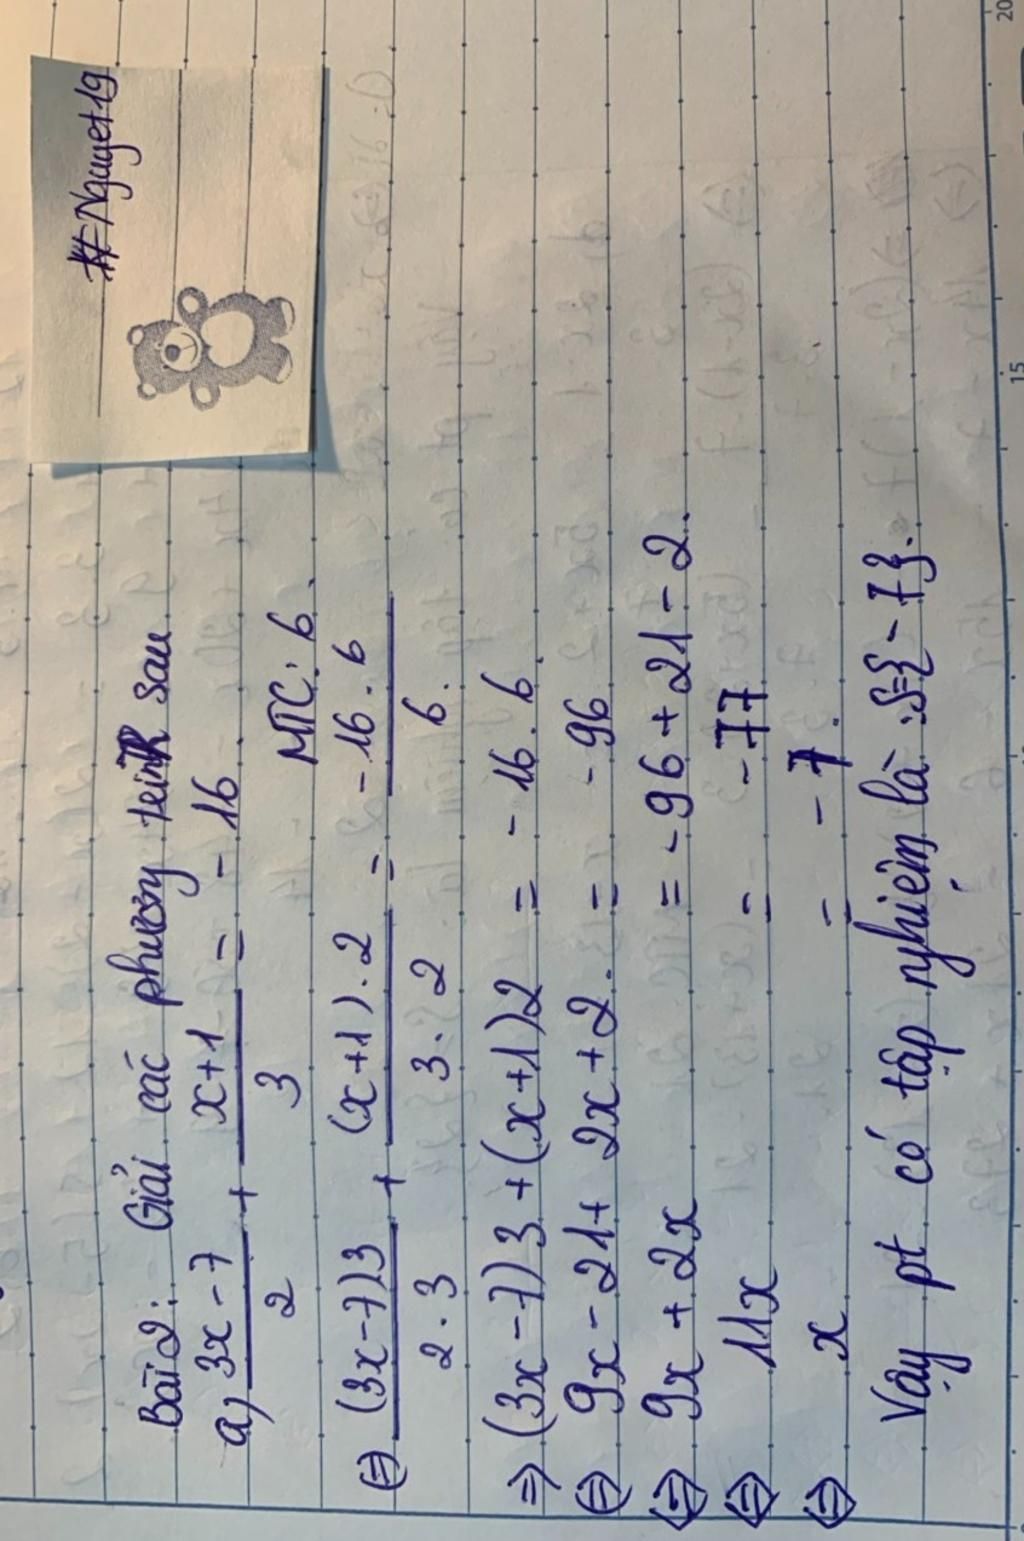 #Nguyet19
Bài 2: Giải các phương trình sau
a) 3x-7/2 + x+1/3 = -16
MTC: 6.
⇔ (3x-7)3/2.3 + (x+1).2/3.2 = -16.6/6.
⇒ (3x-7)3+(x+1)2 = -16.6.
⇔ 9x-21+2x+2. = -96
⇔ 9x+2x = -96+21-2.
⇔ 11x = -77
⇔ x = -7.
Vậy pt có tập nghiệm là: S={-7}.
15
20